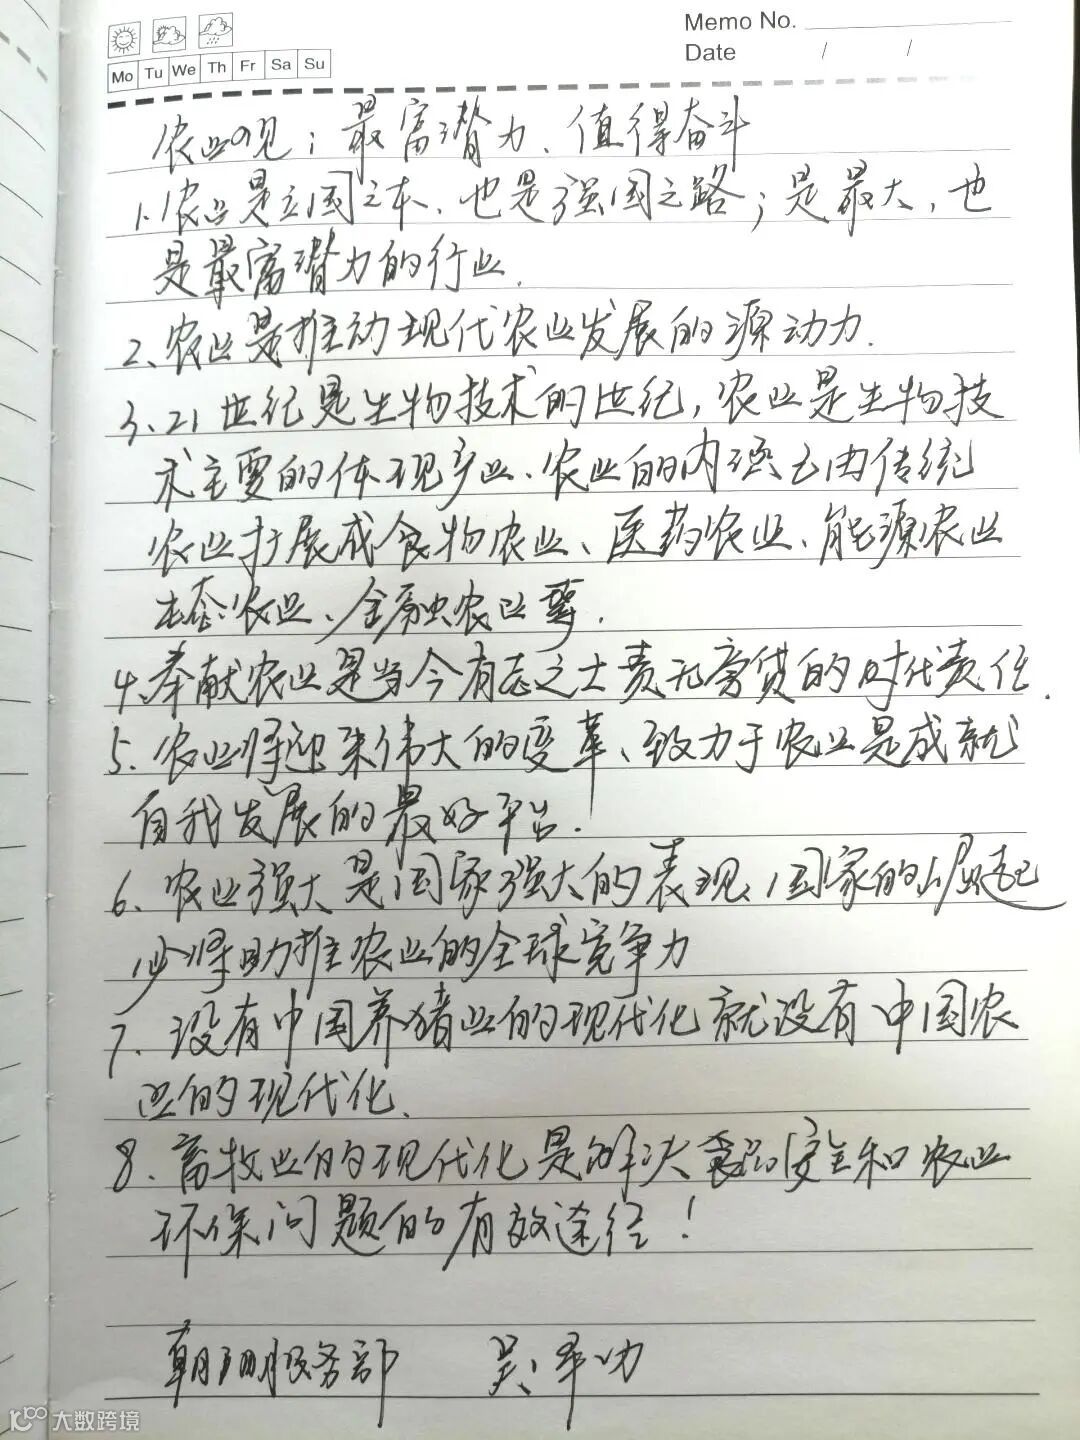 Memo No.
Date / /
Mo Tu We Th Fr Sa Su
农业观：最富潜力、值得奋斗
1、农业是立国之本，也是强国之路；是最大，也
是最富潜力的行业.
2、农业是推动现代农业发展的源动力.
3、21世纪是生物技术的世纪，农业是生物技
术主要的体现产业、农业的内涵已由传统
农业扩展成食物农业、医药农业、能源农业
生态农业、金融农业等.
4、奉献农业是当今有志之士责无旁贷的时代责任.
5、农业将迎来伟大的变革、致力于农业是成就
自我发展的最好平台！
6、农业强大是国家强大的表现，国家的崛起
必将助推农业的全球竞争力
7、没有中国养猪业的现代化就没有中国农
业的现代化、
8、畜牧业的现代化是解决食品安全和农业
环保问题的有效途径！
朝阳服务部 吴举功
大数跨境